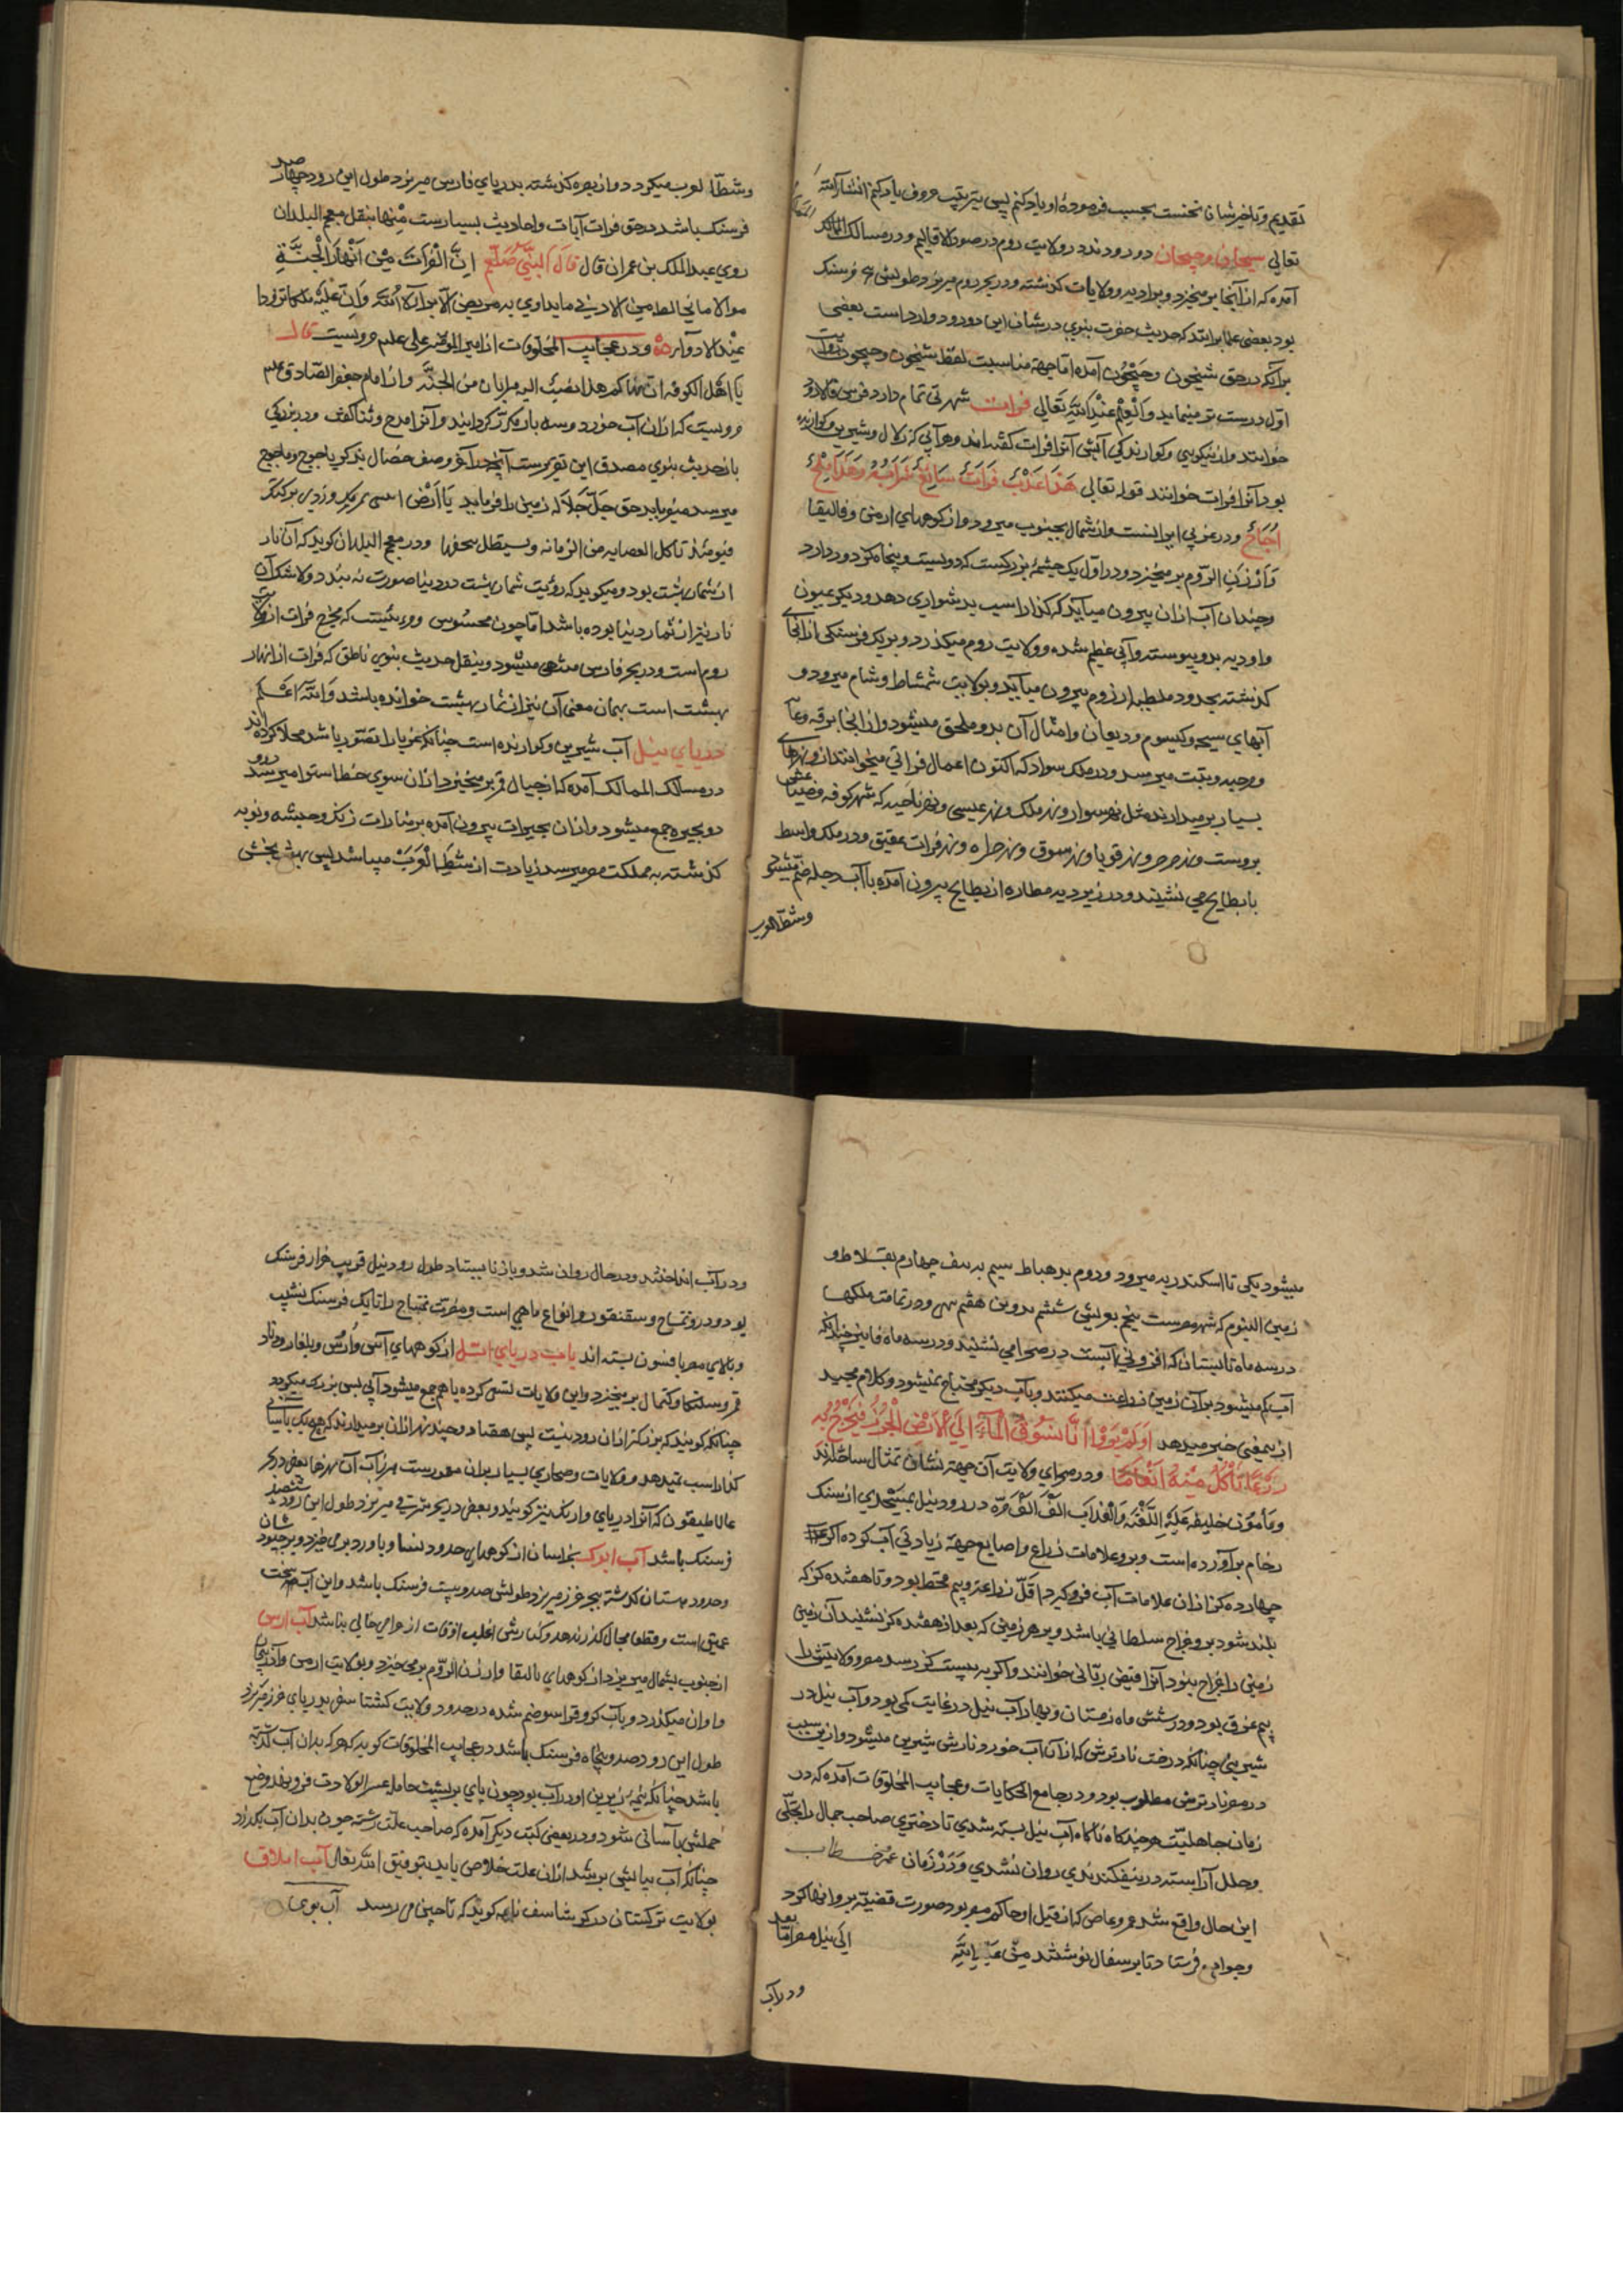 تقدیم و تاخیرشان نخست بحسب فرموده او یاد کنم پس بترتیب حروف یاد کنم انشاء الله
تعالی سیحان و جیحان دو رودند در ولایت روم در صور الاقالیم و در مسالک الممالک
آمده که از آنجا بر میخیزد و بر ادیه و ولایات کذشته و در بحر روم میریزد طولش سی فرسنک
بود بعضی علما برانند که حدیث حضرت نبوی در شان این دو رود وارد است بعضی
برآنکه در حق سیحون و جیحون آمده اما جهة مناسبت لفظ سیحون و جیحون
اول درست تر مینماید و العلم عند الله تعالی فرات شهرتی تمام دارد فرس فالاذرود
خوانند و از نیکویی و کوارندکی آبش آنرا فرات کفته اند و هر آبی که زلال و شیرین و کوارنده
بود آنرا فرات خوانند قوله تعالی هذا عذب فرات سائغ شرابه و هذا ملح
اجاج و در غربی ایرانست و از شمال بجنوب میرود و از کوههای ارمن و قالیقلا
و ارزن الروم بر میخیزد و در اول یک چشمهٔ بزرکست که دویست و پنجاه کز دور دارد
و چندان آب ازان بیرون میآید که کذار اسب بدشواری دهد و دیکر عیون
و اودیه بدو پیوسته و آبی عظیم شده و ولایت روم میکذرد و بر یک فرسنکی ارزنجان
کذشته بحدود ملطیه از روم بیرون میآید و بولایت شمشاط و شام میرود و
آبهای سیحه و کیسوم و دیعان و امثال آن بدو ملحق میشود و از انجا برقه و عانه
و رحبه و هیت میرسد و در ملک سواد که اکنون اعمال فراتی میخوانند ازو نهرهای
بسیار بر میدارند مثل نهر سوار و نهر ملک و نهر عیسی و نهر ناحیه که شهر کوفه و ضیاعش
بروست و نهر صرصر و نهر قویا و نهر سوق و نهر حله و نهر فرات عتیق و در ملک واسط
با بطایح می نشیند و در زیر دیه مطاره از بطایح بیرون آمده با آب دجله ضم میشود
و شط العرب
و شط العرب میکردد و از بصره کذشته بدریای فارس میریزد طول این رود چهار صد
فرسنک باشد در حق فرات آیات و احادیث بسیارست منها بنقل معجم البلدان
روی عبد الملک بن عمران قال قال النبی صلعم ان الفرات من انهار الجنة
عند الادوآء و در عجایب المخلوقات از امیر المؤمنین علی علیه مرویست قال
یا اهل الکوفه ان نهرکم هذا یصب الیه میزابان من الجنة و از امام جعفر الصادق علیه
مرویست که ازان آب خورد و سه بار مکرر کردانید و آنرا مدح و ثنا کفت و در بزرکی
با حدیث نبوی مصدق این تقریرست آنچه در آخر وصف خصال بد که یاجوج و ماجوج
میرسد میفرماید حق جل جلاله زمین را فرماید یا ارض
فیومئذ تاکل العصابه من الرمانه و یستظل بقحفها و در معجم البلدان کوید که آن نار
از ثمار بهشت بود و میکوید که رؤیت ثمار بهشت در دنیا صورت نه بندد و لا شک آن
نار نیز از ثمار دنیا بوده باشد اما چون محسوس و مرئیست که مخرج فرات از ولایت
روم است و در بحر فارس منتهی میشود و بنقل حدیث نبوی ناطق که فرات از انهار
بهشت است بهمان معنی آن نیز از ثمار بهشت خوانده باشد و الله اعلم
دریای نیل آب شیرین و کوارنده است چنانکه غربا را تصور باشد محلا کرده اند
در مسالک الممالک آمده که از جبال قمر بر میخیزد ازان سوی خط استوا میرسد و در
دو بحیره جمع میشود و ازان بحیرات بیرون آمده بر منارات زنک و حبشه و نوبه
کذشته به مملکت مصر میرسد زیادت از شط العرب میباشد پس بهفت بخش
میشود یکی تا اسکندریه میرود و دوم بدمیاط سیم به منف چهارم
زمین الفیوم که شهر مصرست پنجم بعریش ششم هفتم و در تمامت ملکها
در سه ماه تابستان که افزونی آبست در صحرا می نشیند و در سه ماه پاییز چنانکه
آب کم میشود بر آن زمین زراعت میکنند و بآب دیکر محتاج نمیشود و کلام مجید
ازین معنی خبر میدهد اولم یروا انا نسوق الماء الی الارض الجرز فنخرج به
زرعا تاکل منه انعامهم و در صحرای ولایت آن جهة نشان تمثال ساخته اند
و مأمون خلیفه علیه اللعنة و العذاب الف الف مرة در رود نیل مسجدی از سنک
رخام بر آورده است و برو علامات زراع و اصابع جهة زیادتی آب کرده اکر
چهارده کز ازان علامات آب فرو کیرد اقل زراعت و بیم قحط بود و تا هفده کز که
بلند شود برو خراج سلطانی باشد و بر هر زمینی که بعد از هفده کز نشیند آن زمین
زمینی را خراج نبود آنرا فیض ربانی خوانند و اکر به بیست کز رسد مصر و ولایتش را
بیم غرق بود و در شش ماه زمستان و بهار آب نیل در غایت کمی بود و آب نیل در
شیرینی چنانکه درخت نار ترش که ازان آب خورد نارش شیرین میشود و ازین سبب
در مصر نار ترش مطلوب بود و در جامع الحکایات و عجایب المخلوقات آمده که در
زمان جاهلیت هر چند کاه ناکاه آب نیل بسته شدی تا دختری صاحب جمال را بحلی
و حلل آراسته درو نیفکندندی روان نشدی و در زمان عمر خطاب
این حال واقع شد عمرو عاص که از قبل او حاکم مصر بود صورت قضیه برو انها کرد
و جواب فرستاد تا بر سفال نوشتند من عبد الله الی نیل مصر اما بعد
و در آب
و در آب انداختند در حال روان شد و باز نا ایستاد طول رود نیل قریب هزار فرسنک
بود و درو تمساح و سقنقور و انواع ماهی است و مضرت تمساح را تا یک فرسنک نشیب
و بالای مصر بافسون بسته اند یاب دریای اتل از کوههای آس و ارس و بلغار و
بر میخیزد و این ولایات سقی کرده با هم جمع میشود آبی بس بزرک میکردد
چنانکه کویند که بزرکتر ازان رود نیست پس هفتاد و چند نهر ازان بر میدارند که هیچ یک بآسانی
کذار اسب نمیدهد و ولایات و صحاری بسیار بران معمورست مراب آن نهرها بعضی در بحر
غالاطیقون که آنرا دریای وارنک نیز کویند و بعضی در بحر شرقی میریزد طول این رود ششصد
فرسنک باشد آب اترک بخراسان از کوههای حدود نسا و باورد بر می خیزد و بر خبوشان
و حدود دهستان کذشته ببحر خزر میریزد طولش صد و بیست فرسنک باشد و این آب سخت
عمیق است و قطعا مجال کذر ندهد و کنارش اغلب اوقات از حرامی خالی نباشد آب ارس
از جنوب بشمال میریزد از کوههای قالیقلا و ارزن الروم بر می خیزد و بولایت ارمن و آذربیجان
و اران میکذرد و بآب کر و قراسو ضم شده در حدود ولایت کشتاسفی بدریای خزر میریزد
طول این رود صد و پنجاه فرسنک باشد در عجایب المخلوقات کوید که هر که بدان آب کذشته
باشد چنانکه نیمهٔ زیرین او در آب بود چون پای بر پشت حاملهٔ عسر الولادت فرود نهد وضع
حملش بآسانی شود و در بعضی کتب دیکر آمده که صاحب علت رشته چون بدان آب بکذرد
چنانکه آب بپایش بر شد ازان علت خلاص یابد بتوفیق الله تعالی آب ایلاق
بولایت ترکستان در کرشاسف نامه کوید که تا چین می رسد آب بوی